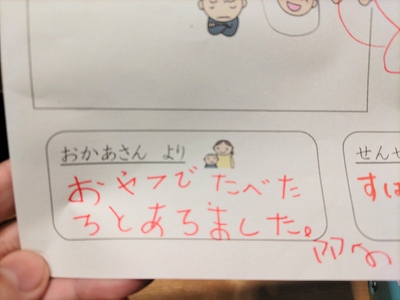 おかあさん より
せんせ
おやつで たべた
ろとあろました。
すは